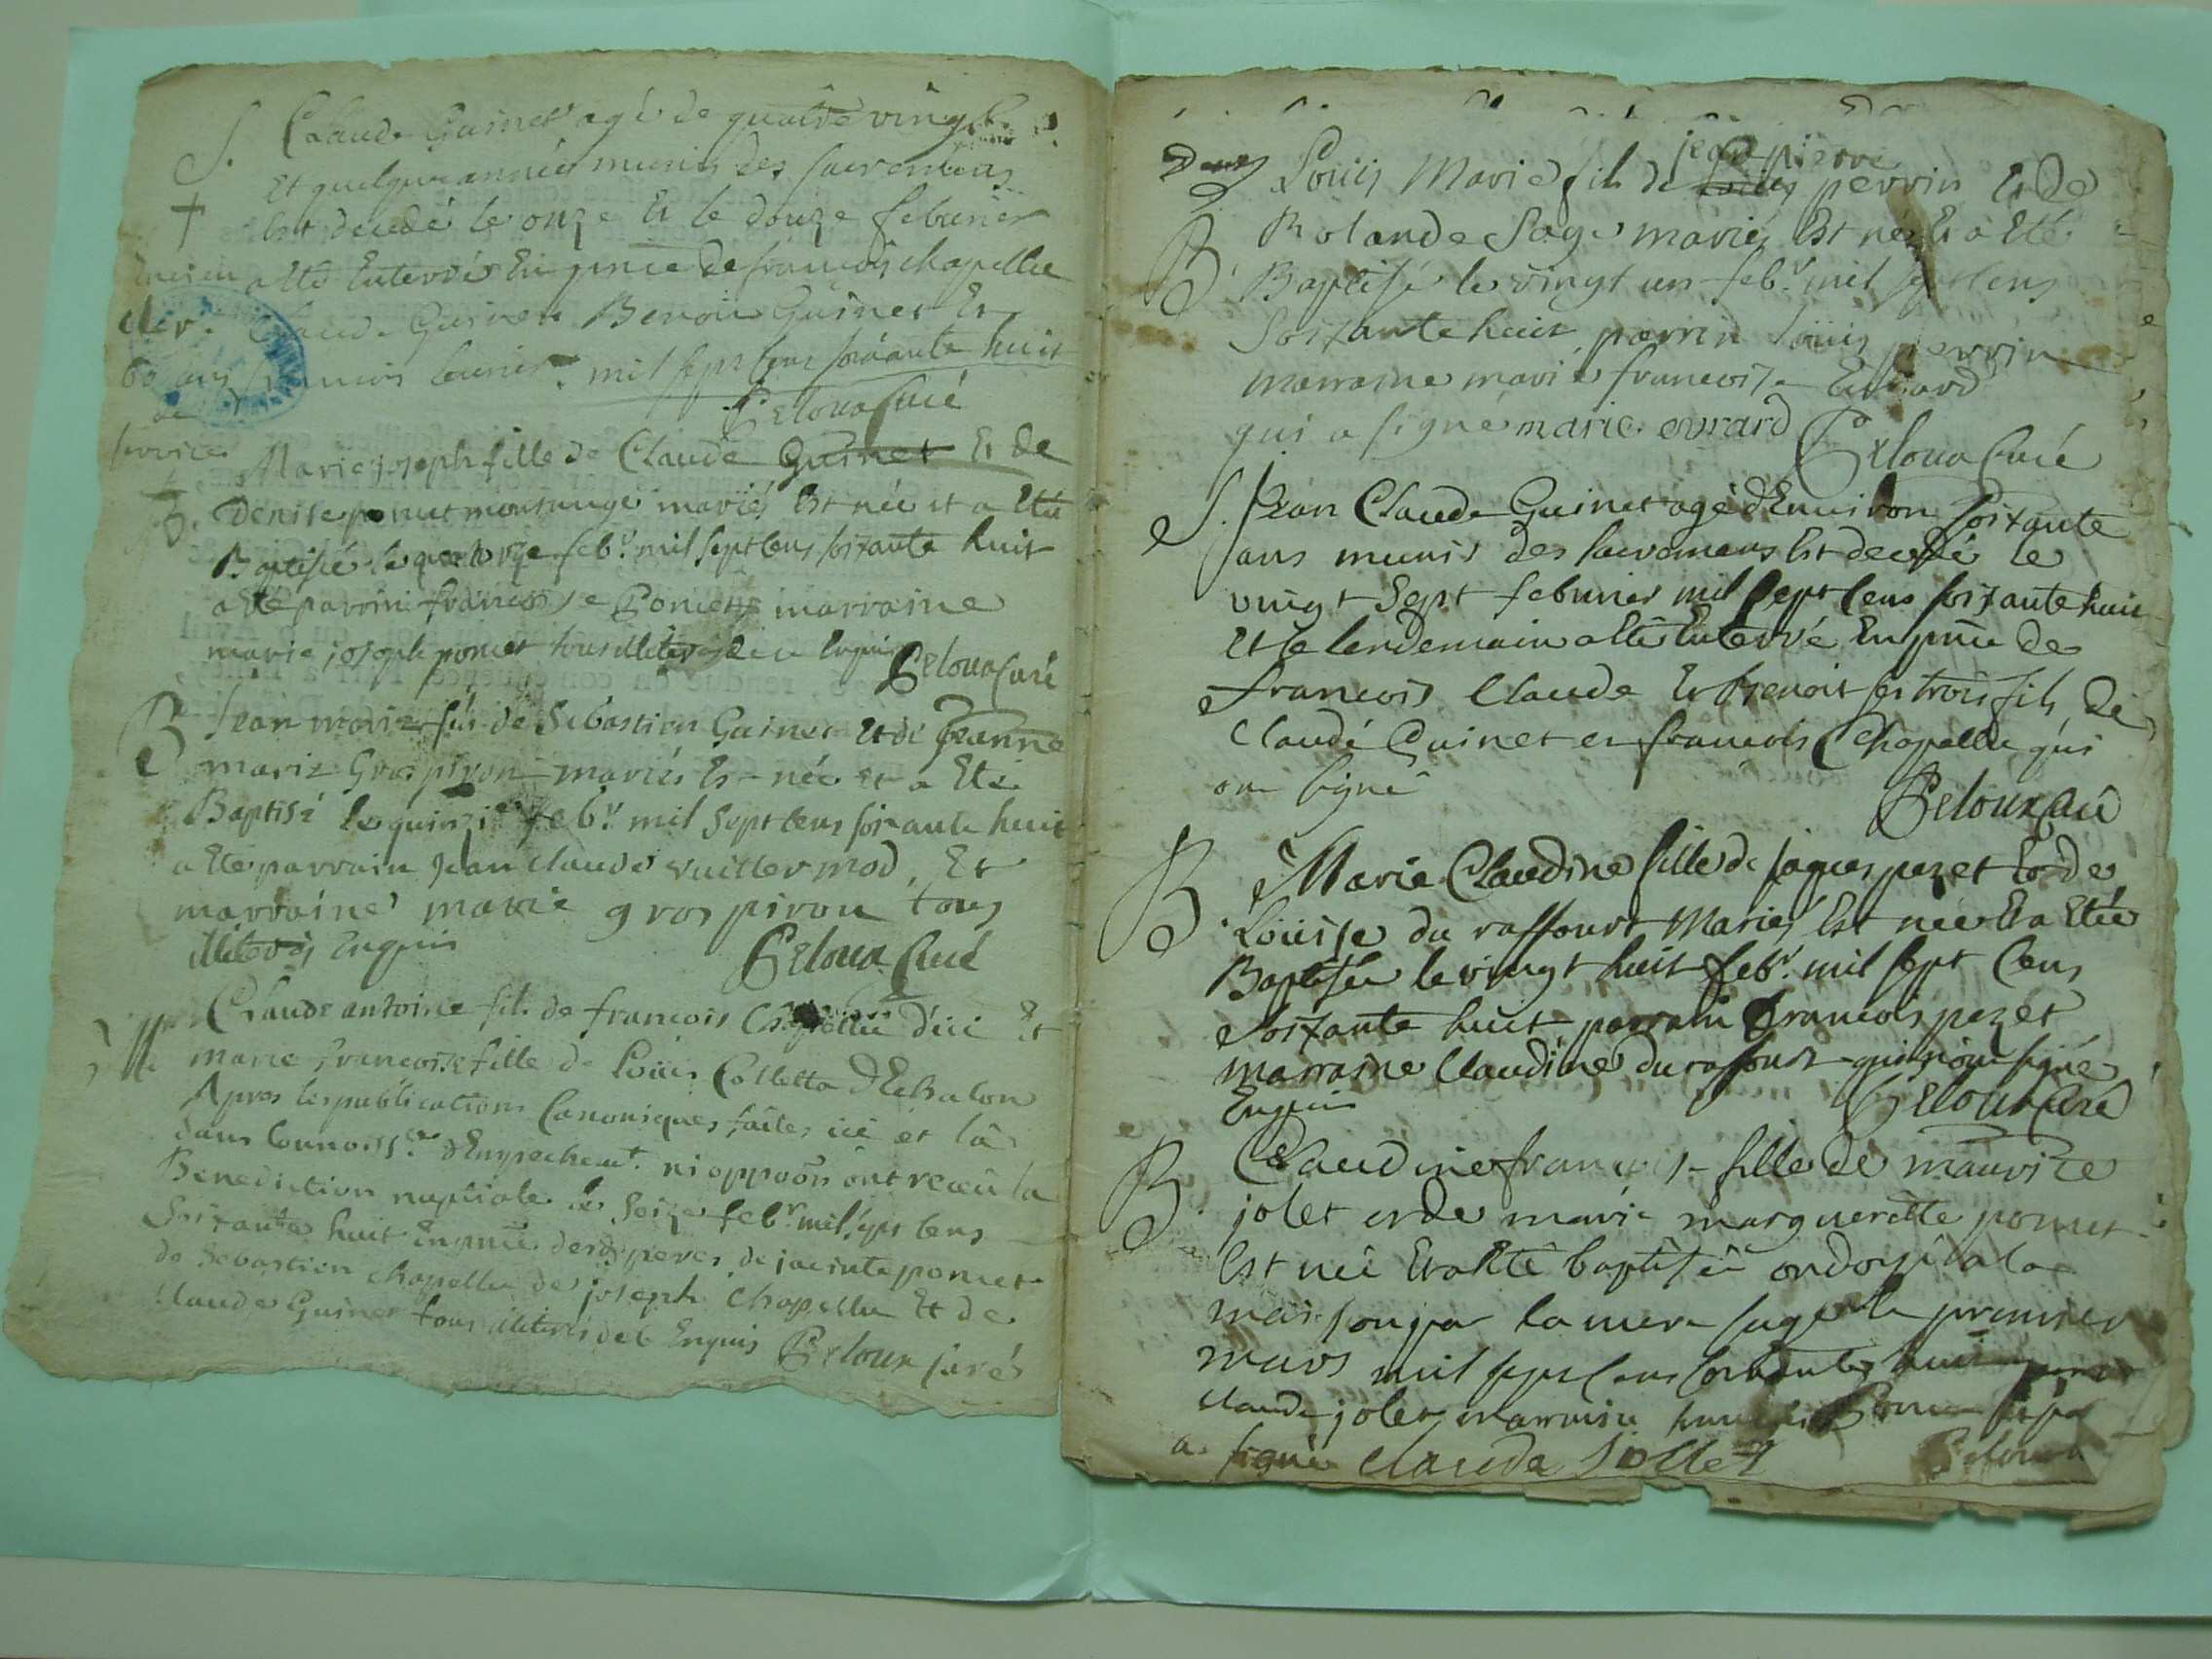 S. Claude Guinet agé de quatre vingt
Et quelque années munis des sacremens
Est decedé le onze Et le douze febvrier
a Eté Enterré En pnce de françois chapellu
Claude Guinet Benoit Guinet Et
mil sept cens soixante huit
Peloux Curé
ancien
cler.
60 ans
de
service
Marie joseph fille de Claude Guinet Et de
B. Denise poncet mariés Est née et a Eté
Baptisée le quatorze febr. mil sept cens soixante huit
a Eté parrin francois Poncet marraine
marie joseph poncet tous illiteres Enquis
Peloux Curé
B Jean marie fils de Sebastien Guinet Et de Jeanne
marie Grospiron mariés Est née et a Eté
Baptisé le quinze febr. mil sept cens soixante huit
a Eté parrain Jean claude vuillermod Et
marraine marie grospiron tous
illiterés Enquis
Peloux Curé
M Claude antoine fils de francois Chapellu d'ici Et
marie francoise fille de Louis Colletta d'Echalon
Apres les publications Canoniques faites ici et là
sans connoissce d'Empechemt. ni oppoõn ont receü la
Benediction nuptiale le seize febr. mil sept cens
soixante huit En pnce des peres de jacinte poncet
de Sebastien chapellu de joseph Chapellu Et de
Claude Guinet tous illiterés de ce Enquis Peloux curé
jean pierre
Louis Marie fils de Louis perrin Et de
B Rolande Sage mariés Est né Et a Eté
Baptisé le vingt un febr. mil sept cens
soixante huit parrin Louis perrin
marraine marie francoise Euvrard
qui a signé marie ovrard
Peloux Curé
S. Jean Claude Guinet agé d'Environ soixante
ans munis des sacremens Est decedé le
vingt sept febvrier mil sept cens soixante huit
Et le lendemain a Eté Enterré En pnce de
francois Claude Et Benoit ses trois fils, de
Claude Guinet et francois Chapellu qui
ont signé
Peloux Curé
B Marie Claudine fille de jaques pezet Et de
Louise du raffourt Mariés Est née Et a Eté
Baptisée le vingt huit febr. mil sept cens
soixante huit parrain francois pezet
marraine Claudine du raffourt qui n'ont signé
Enquis
Peloux Curé
B. Claudine francoise fille de maurize
jolet et de marie marguerette poncet
Est née Et a Eté baptisée ondoyée a la
maison par la mere sage le premier
mars mil sept cens soixante huit
claude jolet marraine
a signé Claude Jollet
Peloux